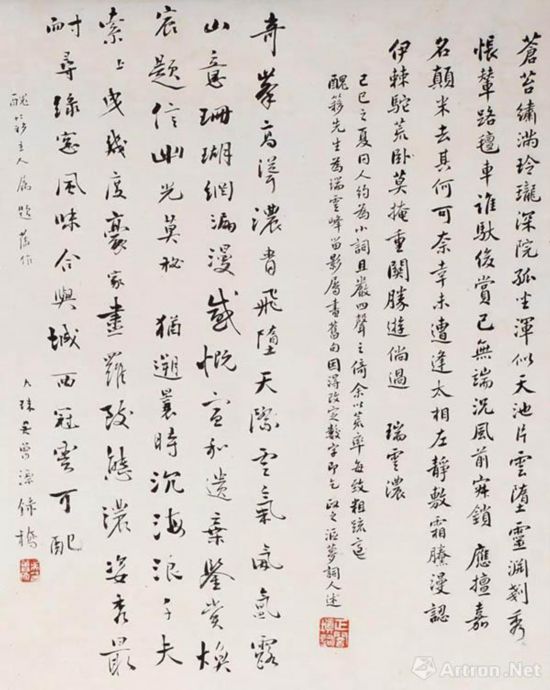 蒼苔繡滿玲瓏深院孤坐渾似天池片雲墮靈淵剗秀
悵輦路氈車誰馱後賞已無端沉風前鎖 應擅嘉
名顛米去其何可奈幸未遭逢太相左靜敷霜賸漫認
伊棘駝荒臥莫掩重關勝遊倘過 瑞雲濃
己巳之夏同人約為小詞且嚴四聲之倚余以荒率每致相疏
醜簃先生為瑞雲峰留影屬書舊句因得改定數字即乞政之 夢詞人述
奇峯高聳濃青飛墮天際雲氣氤氳露
山意珊瑚網漏漫感慨宣和遺棄鑒賞煥
宸題信幽光莫祕 猶遡曩時沉海浪千夫
索上曳幾度豪家畫羅致態濃姿秀最
耐尋綠窗風味合與城西冠雲可配
醜簃主人屬題舊作
吳曾源錄稿
Artron.Net